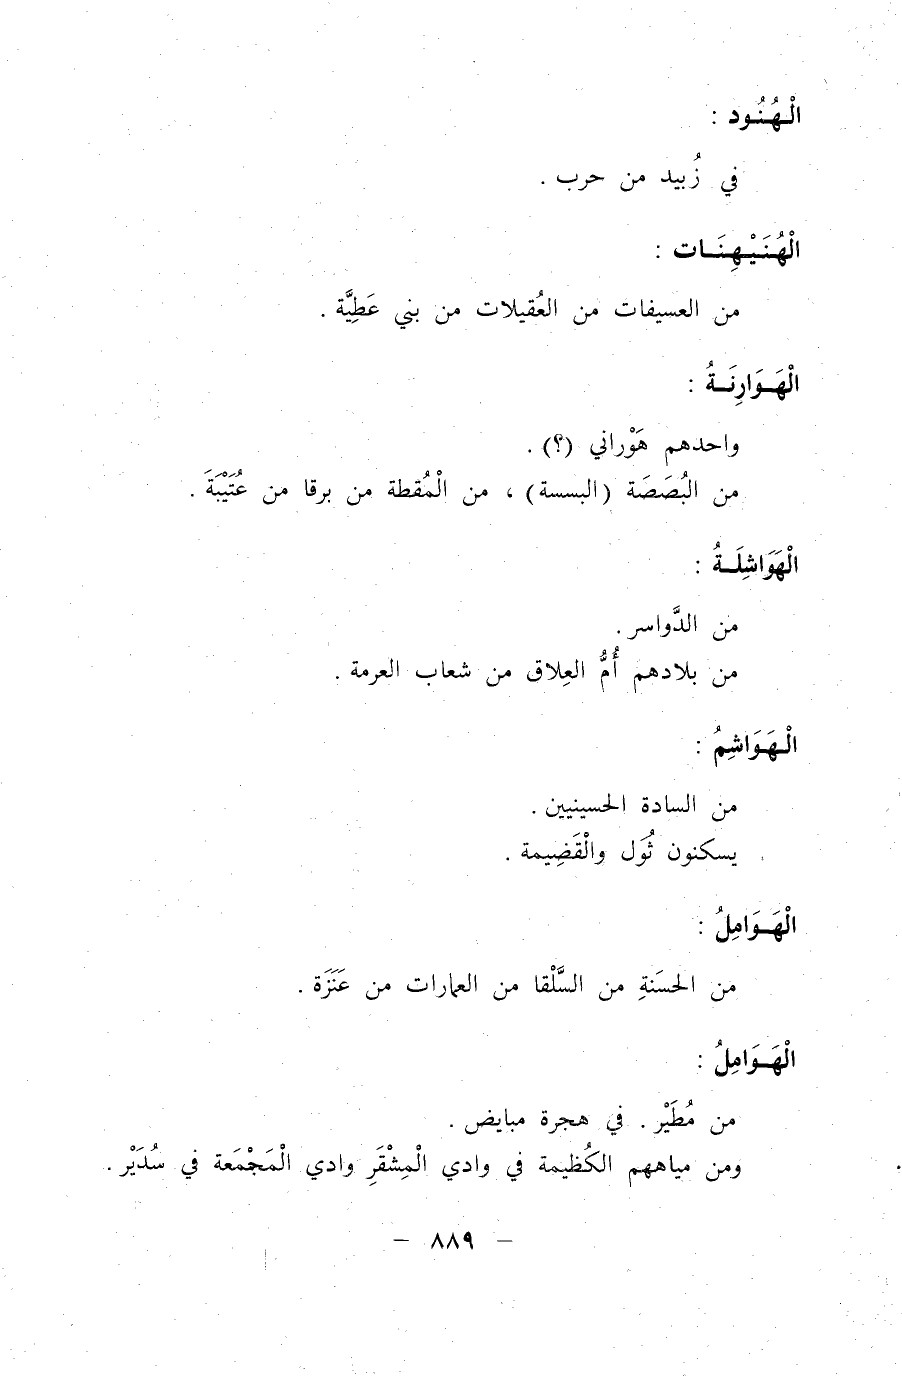 الْهُنُود :
في زُبيد من حرب .
الْهُنَيْهِنَات :
من العسيفات من العُقيلات من بني عَطِيَّة .
الْهَوَارِنَةُ :
واحدهم هَوْراني (؟) .
من البُصَصَة (البسسة) ، من الْمُقطة من برقا من عُتَيْبَةَ .
الْهَوَاشِلَةُ :
من الدَّواسر .
من بلادهم أُمُّ العِلاق من شعاب العرمة .
الْهَوَاشِمُ :
من السادة الحسينيين .
يسكنون ثُوَل والْقَضِيمة .
الْهَوَامِلُ :
من الحسَنةِ من السَّلْقا من العمارات من عَنَزَة .
الْهَوَامِلُ :
من مُطَيْر . في هجرة مبايض .
ومن مياههم الكُظيمة في وادي الْمِشْقَرِ وادي الْمَجْمَعة في سُدَيْر .
– ٨٨٩ –